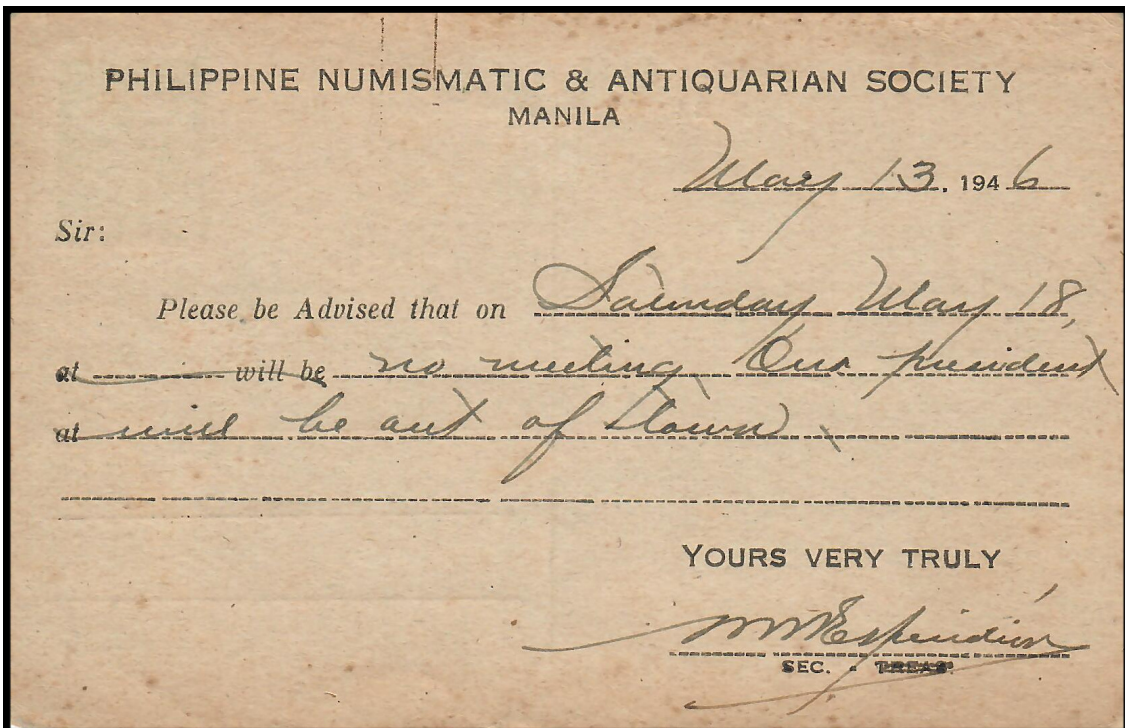 PHILIPPINE NUMISMATIC & ANTIQUARIAN SOCIETY
MANILA
May 13, 1946
Sir:
Please be Advised that on Saturday May 18,
at will be no meeting Our president
at will be out of town
YOURS VERY TRULY
SEC. TREAS.